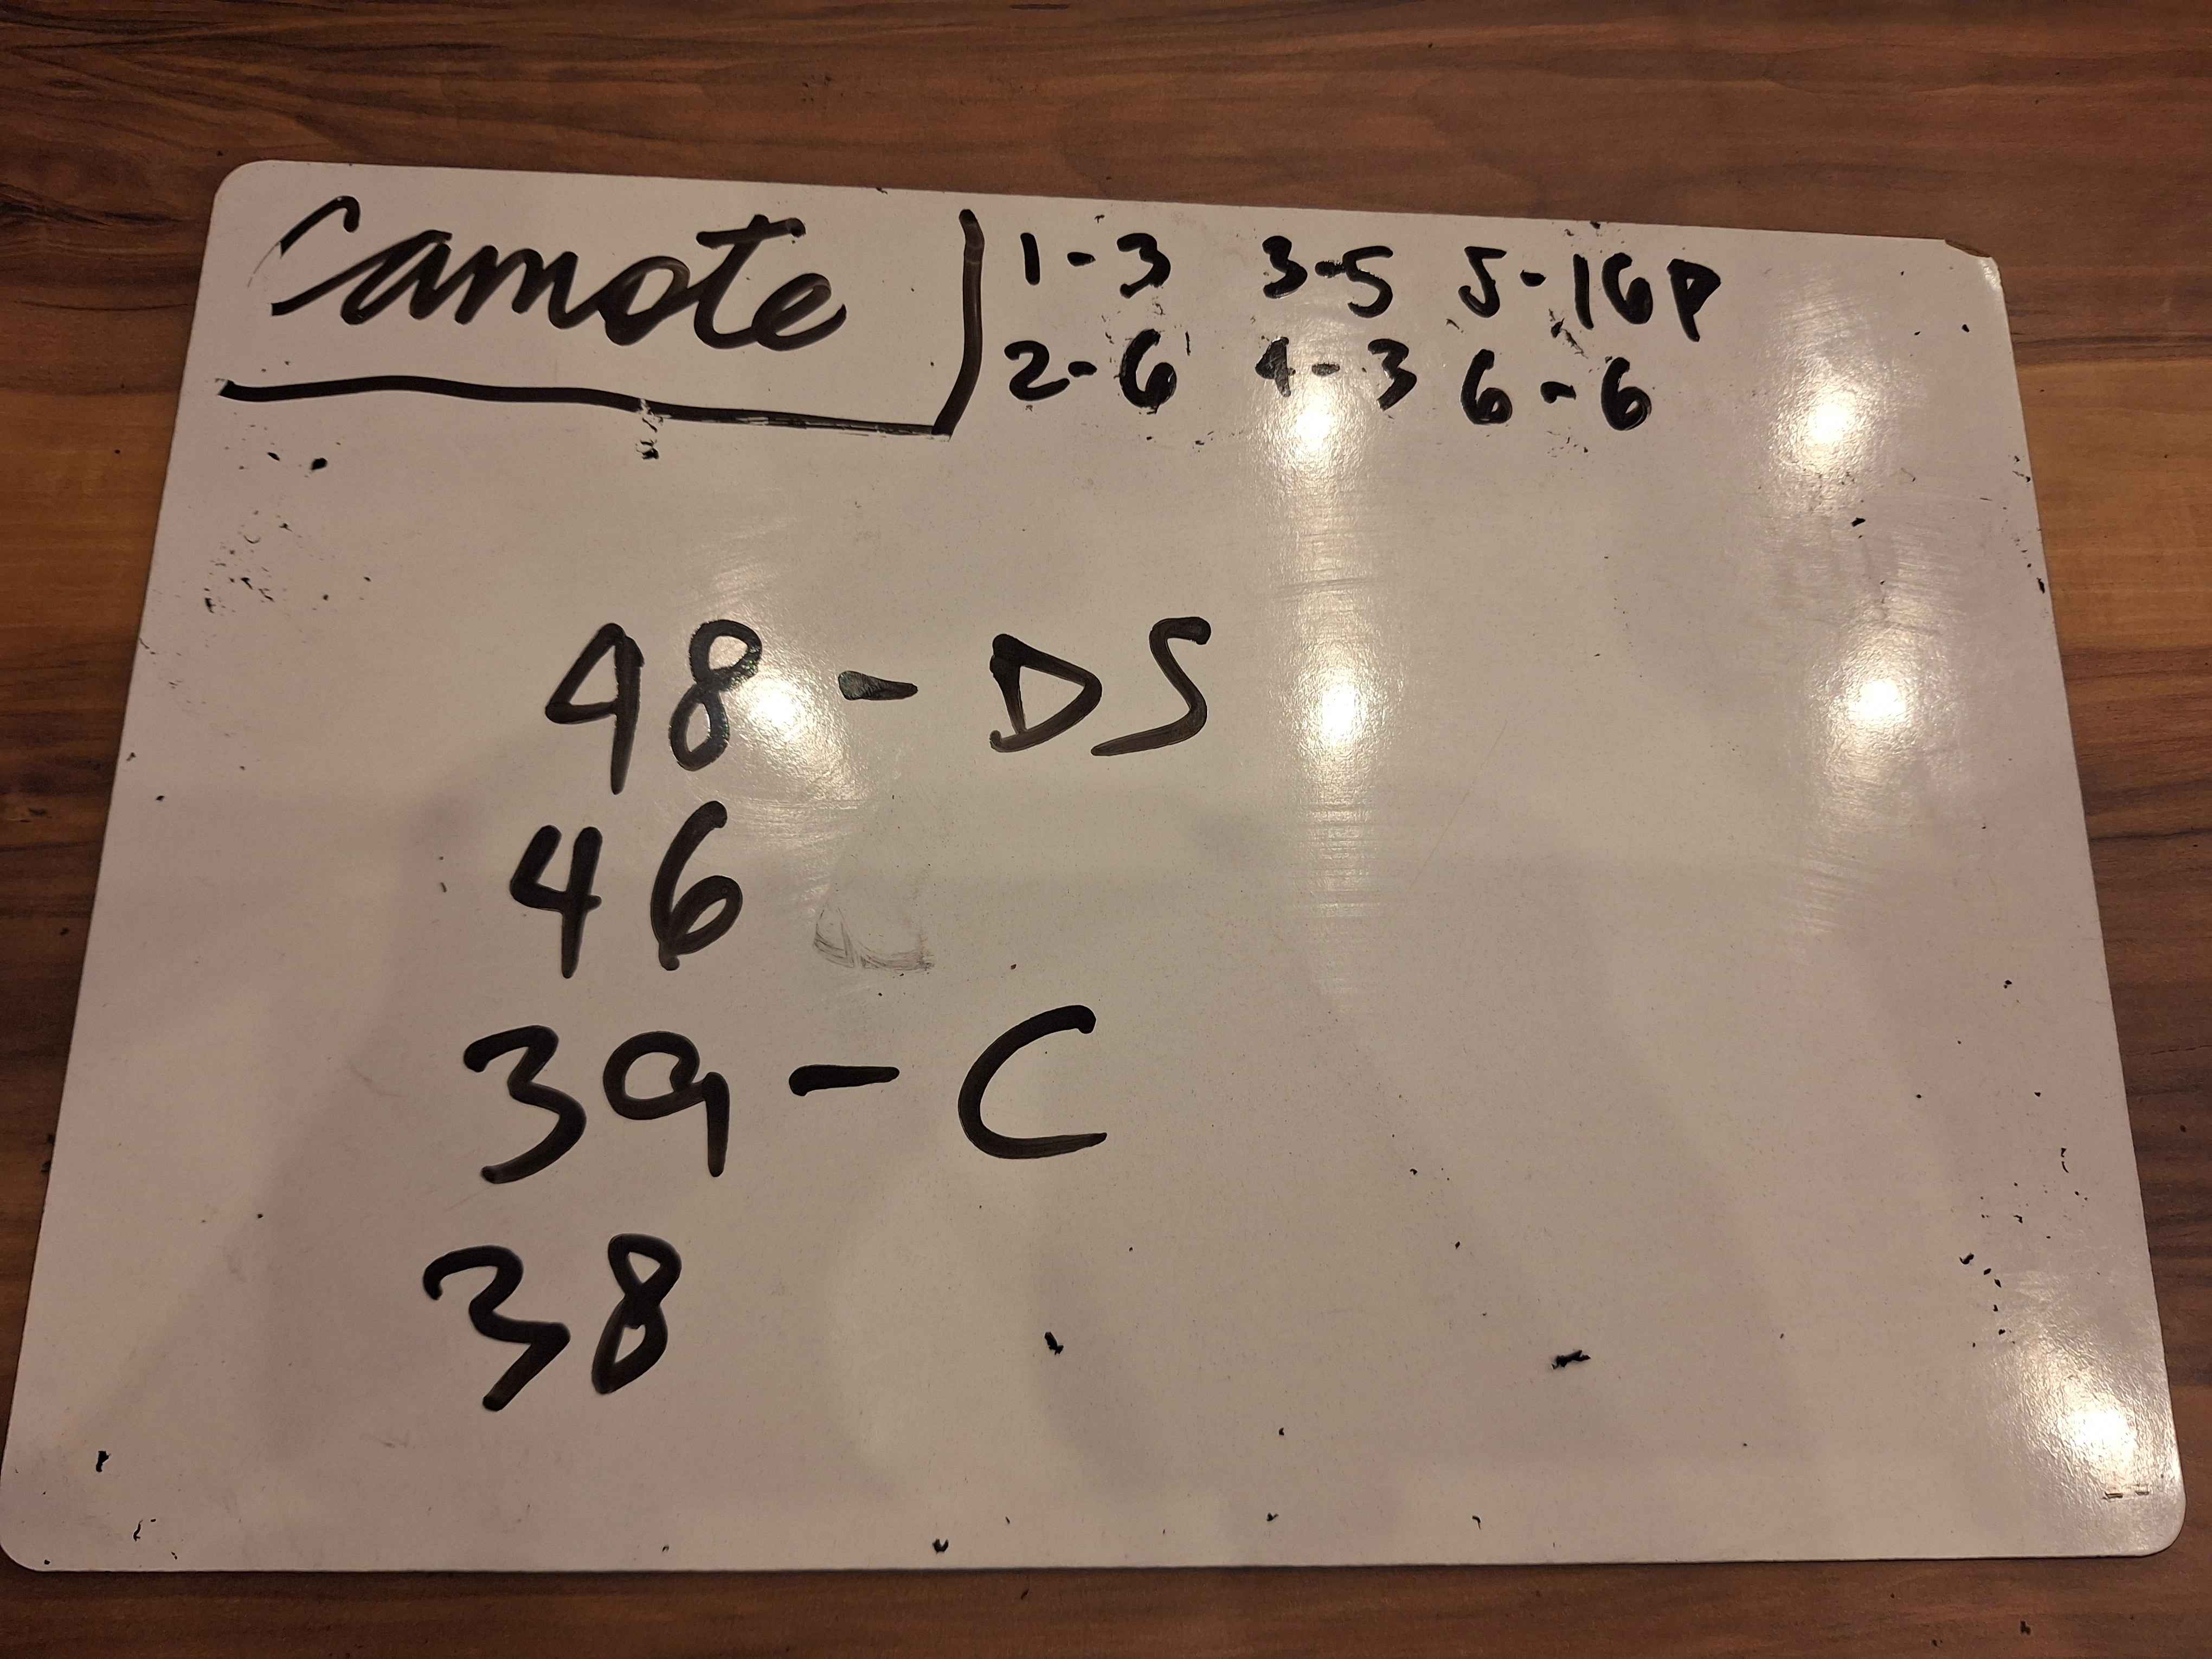 Camote
1-3 3-5 5-16P
2-6 4-3 6-6
48-DS
46
39-C
38